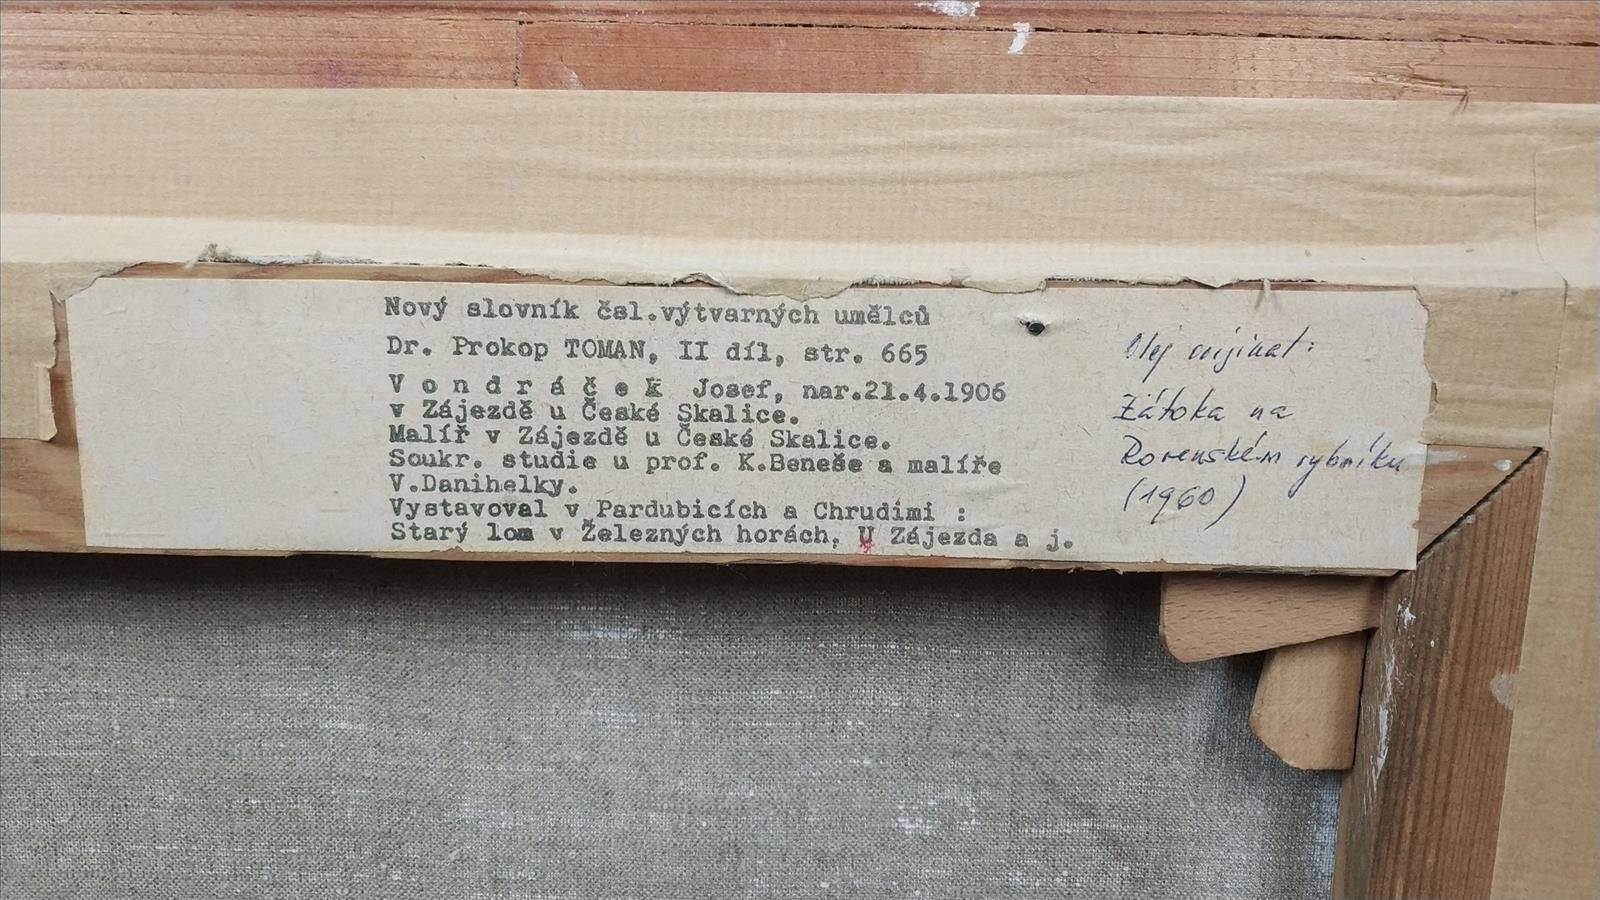 Nový slovník čsl.výtvarných umělců
Dr. Prokop TOMAN, II díl, str. 665
V o n d r á č e k Josef, nar.21.4.1906
v Zájezdě u České Skalice.
Malíř v Zájezdě u České Skalice.
Soukr. studie u prof. K.Beneše a malíře
V.Danihelky.
Vystavoval v Pardubicích a Chrudimi :
Starý lom v Železných horách, U Zájezda a j.
Olej originál:
Zátoka na
rybníku
(1960)